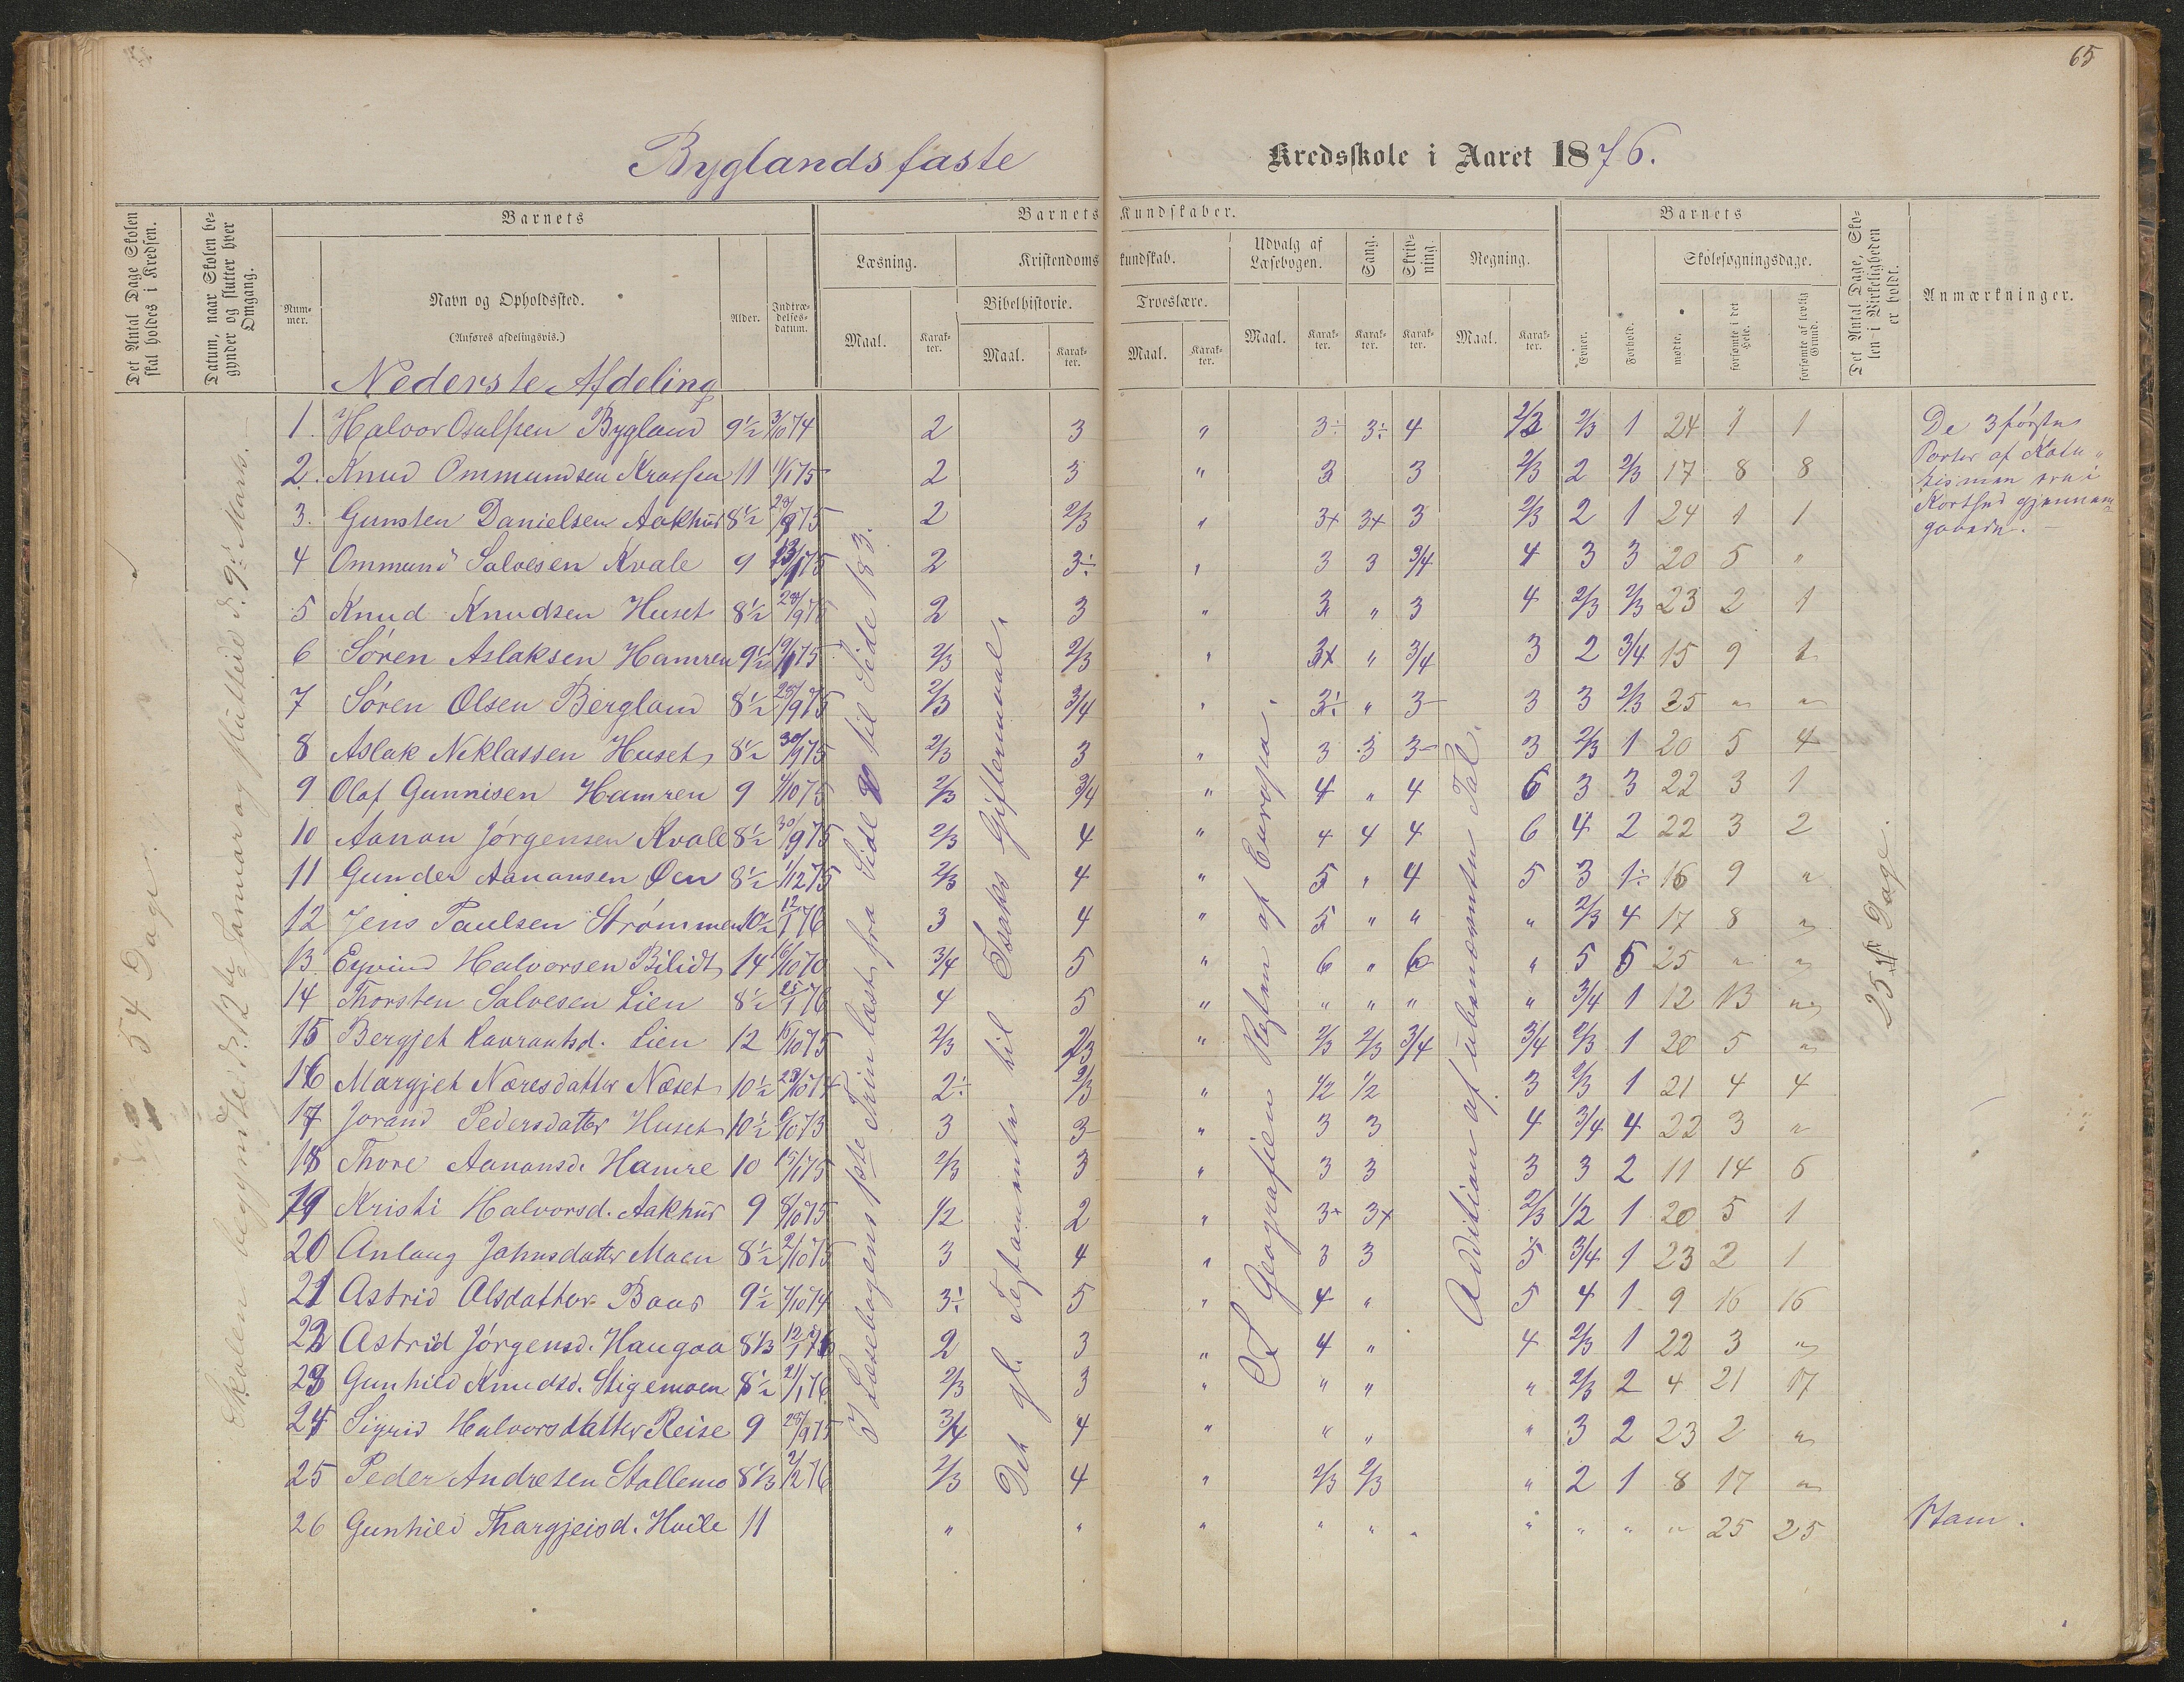 65
Byglands faste Kredsskole i Aaret 1876.
Det Antal Dage Skolen skal holdes i Kredsen.
Datum, naar Skolen begynder og slutter hver Omgang.
Barnets
Barnets Kundskaber.
Barnets
Det Antal Dage, Skolen i Virkeligheden er holdt.
Anmærkninger.
Nummer.
Navn og Opholdssted.
(Anføres afdelingsvis.)
Alder.
Indtrædelsesdatum.
Læsning.
Kristendomskundskab.
Udvalg af Læsebogen.
Sang.
Skrivning.
Regning.
Evner.
Forhold.
Skolesøgningsdage.
Bibelhistorie.
Troeslære.
Maal.
Karakter.
Maal.
Karakter.
Maal.
Karakter.
Maal.
Karakter.
Karakter.
Karakter.
Maal.
Karakter.
mødte.
forsømte i det Hele.
forsømte af lovlig Grund.
Nederste Afdeling
1. Halvor Osulfsen Bygland 9½ 3/10 74 2 3 " 3÷ 3÷ 4 2/3 2/3 1 24 1 1
2. Knud Ommundsen 11 11/1 75 2 3 " 3 3 2/3 2 2/3 17 8 8
3. Gunsten Danielsen Aakhus 8½ 28/9 75 2 2/3 " 3+ 3+ 3 2/3 2 1 24 1 1
4 Ommund Salvesen Kvale 9 2 3÷ " 3 3 3/4 4 3 3 20 5 "
5 Knud Knudsen Huset 8½ 28/9 75 2 3 " 3 " 3 4 2/3 2/3 23 2 1
6 Søren Aslaksen Hamren 9½ 2/3 2/3 " 3+ " 3/4 3 2 3/4 15 9 1
7 Søren Olsen Bergland 8½ 28/9 75 2/3 3/4 " 3÷ " 3 3 3 2/3 25 " "
8 Aslak Neklassen Huset 8½ 30/9 75 2/3 3 " 3 3 3 3 2/3 1 20 5 4
9 Olaf Gunnisen Hamren 9 1/10 75 2/3 3/4 " 4 " 4 6 3 3 22 3 1
10 Aanon Jørgensen Kvale 8½ 30/9 75 2/3 4 " 4 4 4 6 4 2 22 3 2
11 Gunder Aanansen Øen 8½ 1/12 75 2/3 4 " 5 " 4 5 3 1÷ 16 9 "
12 Jens Paulsen Strømmen 10½ 12/1 76 3 4 " 5 " " " 2/3 4 17 8 "
13 Eyvind Halvorsen Bilidt 14 16/10 70 3/4 5 " 6 " 6 " 5 5 25 " "
14 Thorsten Salvesen Lien 8½ 25/1 76 4 5 " " " " " 3/4 1 12 13 "
15 Bergjet Lavrantsd. Lien 12 15/10 75 2/3 2/3 " 2/3 2/3 3/4 3/4 2/3 1 20 5 "
16 Margjet Næresdatter Næset 10½ 28/10 74 2÷ 2/3 " 1/2 1/2 3 2/3 1 21 4 4
17 Jorand Pedersdatter Huset 10½ 6/10 73 3 3 " 3 3 4 3/4 4 22 3 "
18 Thore Aanonsd. Hamre 10 15/1 75 2/3 3 " 3 3 3 3 2 11 14 6
19 Kristi Halvorsd. Aakhus 9 8/10 75 1/2 2 " 3+ 3+ 2/3 1/2 1 20 5 1
20 Anlaug Johnsdatter Moen 8½ 2/10 75 3 4 " 3 3 5 3/4 1 23 2 1
21 Astrid Olsdatter Baas 9½ 7/10 74 3÷ 5 " 4 " 5 4 1 9 16 16
22 Astrid Jørgensd. Haugaa 8⅓ 12/1 76 2 3 " 4 " 4 2/3 1 22 3 "
23 Gunhild Knudsd. Stigemoen 8½ 21/1 76 2/3 3 " " " " 2/3 2 4 21 17
24 Sigrid Halvorsdatter Reise 9 28/9 75 3/4 4 " " " " 3 2 23 2 "
25 Peder Andresen Stallemo 8⅓ 2/2 76 2/3 4 " 2/3 2/3 " 2 1 8 17 "
26 Gunhild Thorgjeisd. Hvile 11 " " " " " " " " " " 25 25
54 Dage.
Skolen begyndte d. 12te Januar og sluttede d. 9de Marts.
I Læsebogens 1ste Trin læst fra Side til Side 183.
Det gl. Testamente til Isaks Giftermaal.
Af Geografien Resten af Europa.
Addition af ubenævnte Tal.
25 Dage.
De 3 første
Parter af Kate-
tismen ere i
Korthed gjennem-
gaaede.